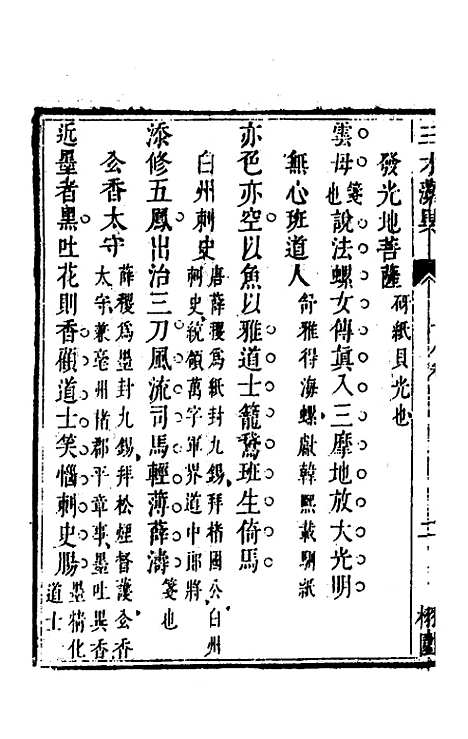 發光地菩薩 研紙貝光也
雲母箋也說法螺女傳真入三摩地放大光明
無心班道人 舒雅得海螺獻韓熙載砑紙
亦色亦空以魚以雅道士籠鵞班生倚馬
白州刺史 唐薛稷爲紙封九錫拜楮國公白州刺史統領萬字軍界道中郎將
添修五鳳出治三刀風流司馬輕薄薛濤箋也
玄香太守 薛稷爲墨封九錫拜松煙督護玄香太守兼亳州楮郡平章事墨吐異香
近墨者黑吐花則香頫道士笑惱刺史腸 墨精化道士